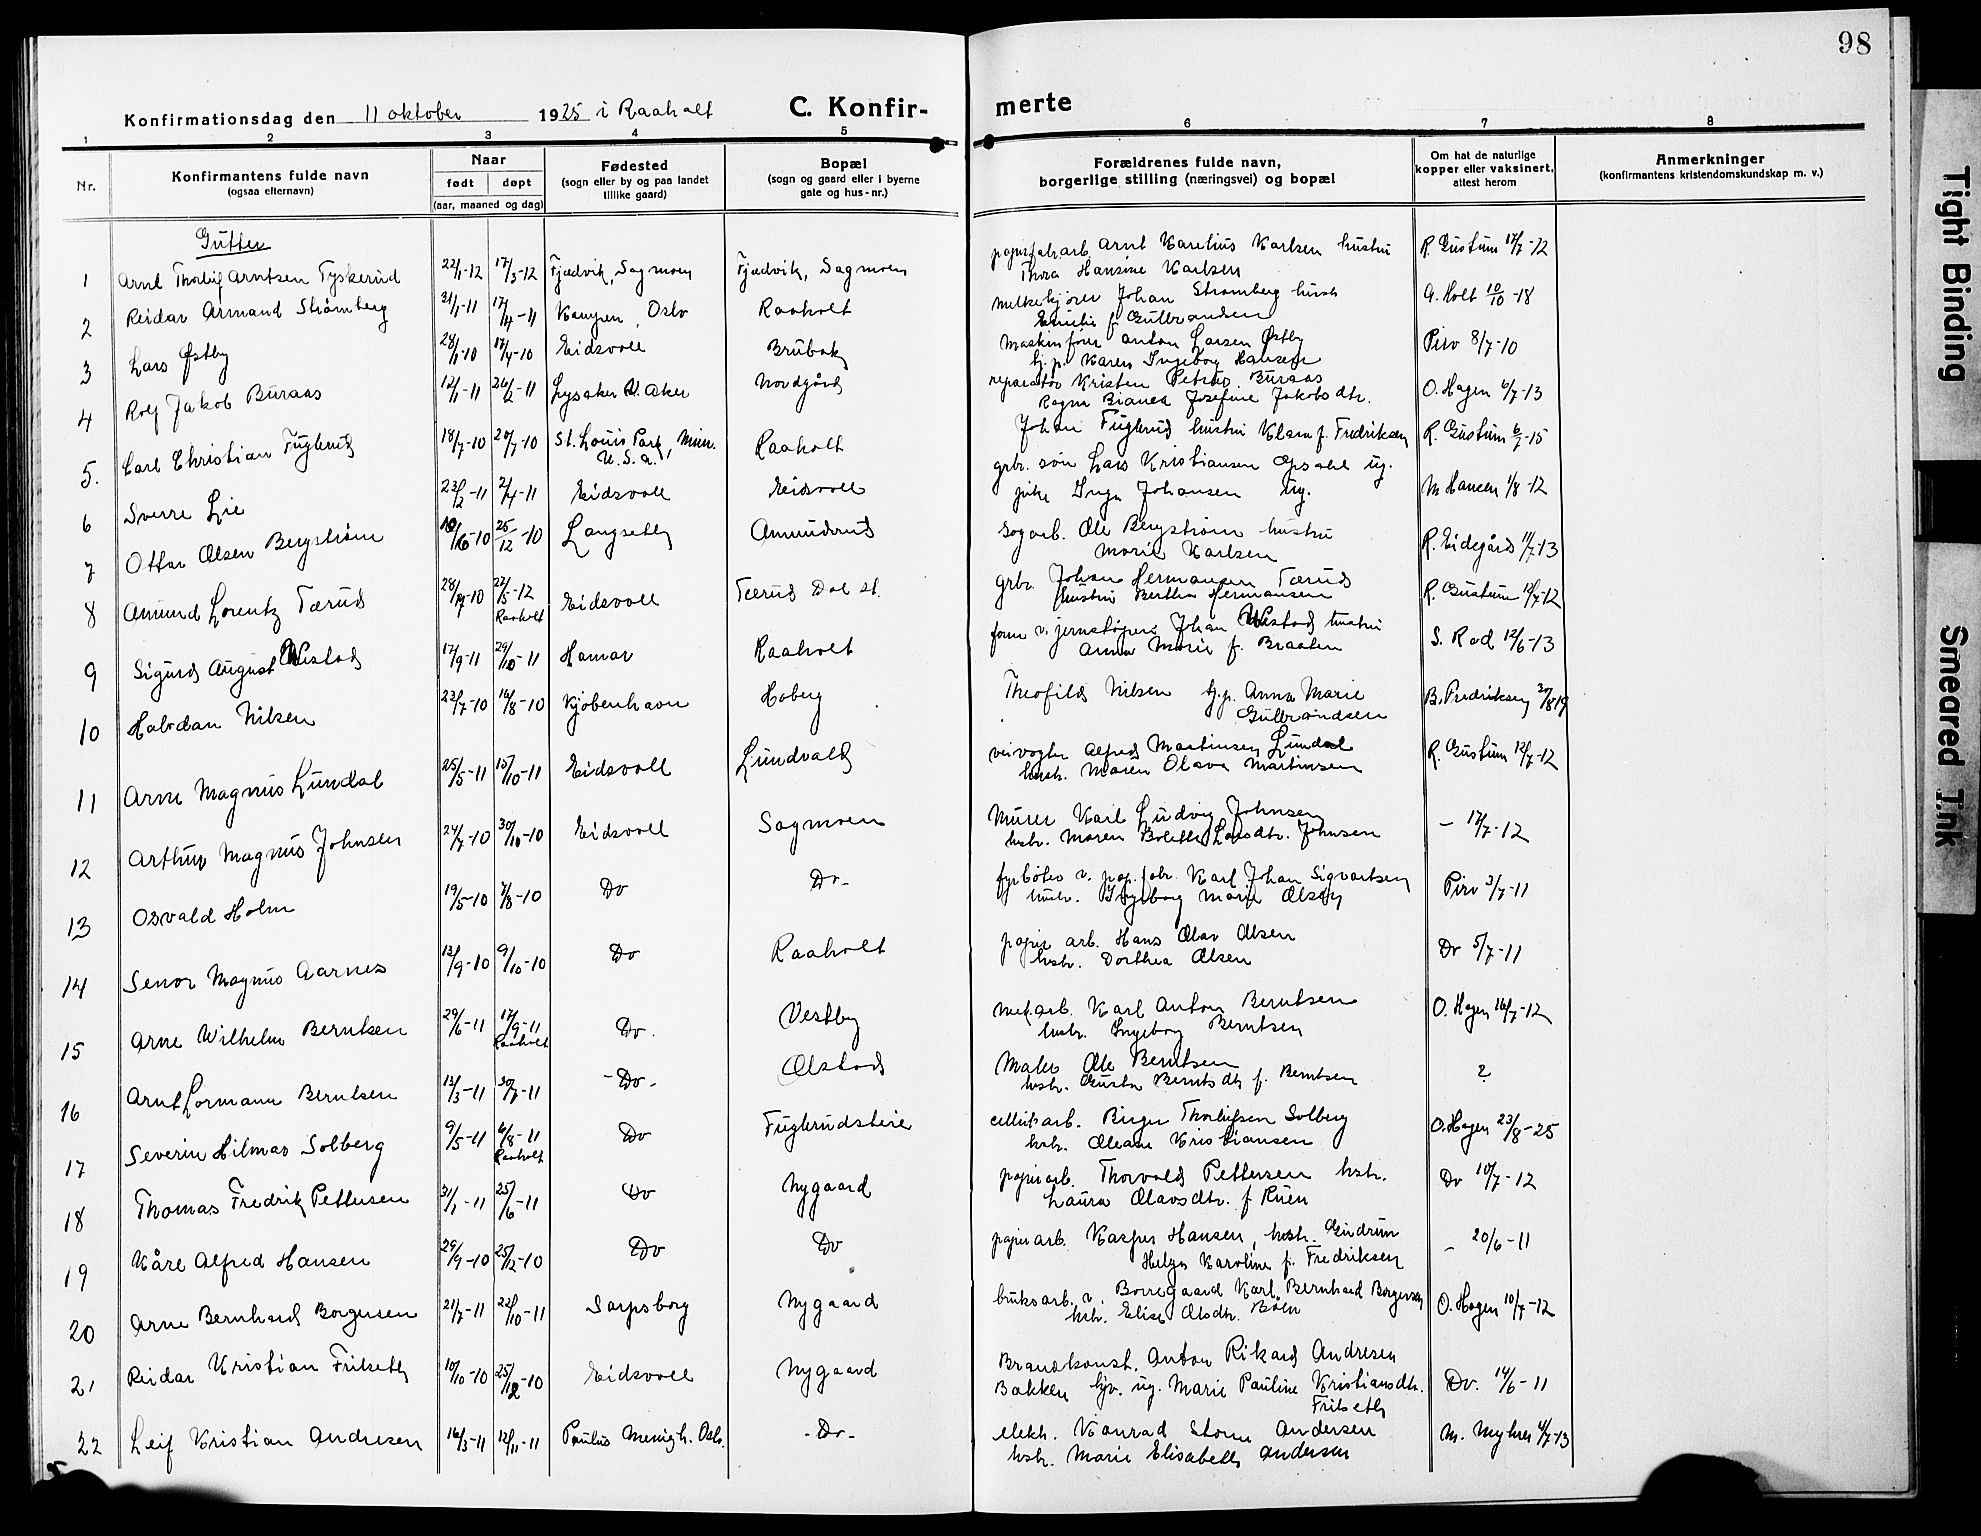 98
Konfirmationsdag den 11 oktober 1925 i Raaholt
C. Konfir-
merte
1 2 3 4 5 6 7 8
Nr.
Konfirmantens fulde navn
(ogsaa efternavn)
Naar
født døpt
(aar, maaned og dag)
Fødested
(sogn eller by og paa landet
tillike gaard)
Bopæl
(sogn og gaard eller i byerne
gate og hus-nr.)
Forældrenes fulde navn,
borgerlige stilling (næringsvei) og bopæl
Om hat de naturlige
kopper eller vaksinert,
attest herom
Anmerkninger
(konfirmantens kristendomskundskap m. v.)
Gutter
1 Arnt Thorleif Arntsen Tyskerud 22/1-12 17/3-12 Fjædvik, Sagmoen Fjædvik, Sagmoen papirfabrarb. Arnt Karelius Karlsen hustru R. Gustum 17/7-12
Thora Hansine Karlsen
2 Reidar Armand Strømberg 31/1-11 17/4-11 Kampen, Oslo Raaholt melkekjører Johan Strømberg hustr. A. Holt 10/10-18
Emilie f. Gulbrandsen
3 Lars Østby 28/1-10 17/4-10 Eidsvoll Brubak Maskinfører Anton Larsen Østby Piro 8/7-10
hj.p. Karen Ingeborg Hansen
4 Rolf Jakob Buraas 12/1-11 26/2-11 Lysaker V. Aker Nordgård reparatør Kristen Petrus Buraas O. Hagen 6/7-13
Ragna Bianca Josefine Jakobsdtr.
5. Carl Christian Fuglerud 18/7-10 20/7-10 St. Louis Park, Minn. Raaholt Johan Fuglerud hustru Klara f. Fredriksen R. Gustum 6/7-15
U.S.A.
6 Sverre Lie 23/2-11 2/4-11 Eidsvoll Eidsvoll grbr. søn Lars Kristiansen Opsahl ug. M Hansen 1/8-12
pike Inga Johansen ug.
7 Ottar Olsen Bergstrøm 10/10-10 25/12-10 Langseth Amundrud sagarb. Ole Bergstrøm hustru R. Eidegård 11/7-13
Marie Karlsen
8 Amund Lorentz Tærud 28/12-10 27/5-12 Eidsvoll Tærud Dal st. grbr. Johan Hermansen Tærud R. Gustum 12/7-12
Raaholt hustru Bertha Hermansen
9 Sigurd August Wistad 17/9-11 29/10-11 Hamar Raaholt form v. jernstøperi Johan Wistad hustru S. Rød 12/6-13
Anna Marie f. Braaten
10 Halvdan Nilsen 23/7-10 16/8-10 Kjøbenhavn Hoberg Theofilds Nilsen hj.p. Anna Marie B. Fredriksen 30/8 19
Gulbrandsen
11 Arne Magnus Lundal 25/5-11 15/10-11 Eidsvoll Lundvald veivogter Alfred Martinsen Lundal R. Gustum 12/7-12
hustr. Maren Olava Martinsen
12 Arthur Magnus Johnsen 24/7-10 30/10-10 Eidsvoll Sagmoen Murer Karl Ludvig Johnsen – 17/7-12
hustr. Maren Bolette Larsdtr. Johnsen
13 Osvald Holm 19/5-10 7/8-10 Do Do- fyrbøter v. pap.fabr. Karl Johan Sigvartsen Piro 3/7-11
hustr. Ingeborg Marie Olsen
14 Senor Magnus Aarnes 13/9-10 9/10-10 Do Raaholt papir arb. Hans Olav Olsen Do 5/7-11
hustr. Dorthea Olsen
15 Arne Wilhelm Berntsen 29/6-11 17/9-11 Do. Vestby mek.arb. Karl Anton Berntsen O. Hagen 16/7-12
Raaholt hustr. Ingeborg Berntsen
16 Arnt Lormann Berntsen 13/3-11 30/7-11 -Do- Olstad Maler Ole Berntsen ?
hustr. Gusta Berntsdtr f. Berntsen
17 Severin Hilmar Solberg 9/5-11 6/8-11 Do Fuglerudsteie cellul.arb. Birger Thorleifsen Solberg O. Hagen 23/8-25
Raaholt hustr. Oleane Kristiansen
18 Thomas Fredrik Pettersen 31/1-11 25/6-11 Do Nygaard papirarb. Thorvald Pettersen hstr. Do 10/7-12
Laura Olavsdtr. f Ruen
19 Kåre Alfred Hansen 29/9-10 25/12-10 Do Do papirarb. Kasper Hansen, hstr. Gudrun – 20/6-11
Helga Karoline f. Fredriksen
20 Arne Bernhard Borgersen 21/7-11 22/10-11 Sarpsborg Nygaard bruksarb. v. Borregaard Karl Bernhard Borgersen O. Hagen 10/7-12
hstr. Elise Olsdtr. Bøen
21 Reidar Kristian Fritseth 10/10-10 25/12-10 Eidsvoll Nygaard Brandkonst. Anton Rikard Andresen Do. 14/6-11
Bakken hjv. ug. Marie Pauline Kristiansdtr.
Fritseth
22 Leif Kristian Andresen 16/3-11 12/11-11 Paulus Menigh. Oslo. -Do- elektr. Konrad Storm Andersen M. Myhrer 4/7-13
hstr. Marie Elisabeth Andersen
Tight Binding
Smeared Ink